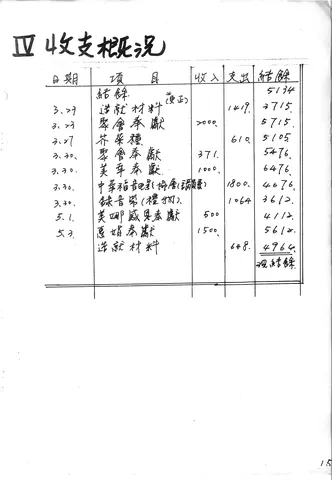 Ⅳ 收支概況
日期 項目 收入 支出 結餘
結餘 (更正) 5134
3.23 造就材料 1419. 3715.
3.23 聚會奉獻 2000. 5715
3.27 芥菜種 610. 5105
3.30. 聚會奉獻 371. 5476.
3.30. 美華奉獻. 1000. 6476
3.30. 中華福音 1800. 4676
3.30. 錄音帶(禮物) 1064 3612.
5.1. 美娜感恩奉獻 500 4112
5.3. 奉獻 1500. 5612
造就材料 648. 4964
現結餘
15